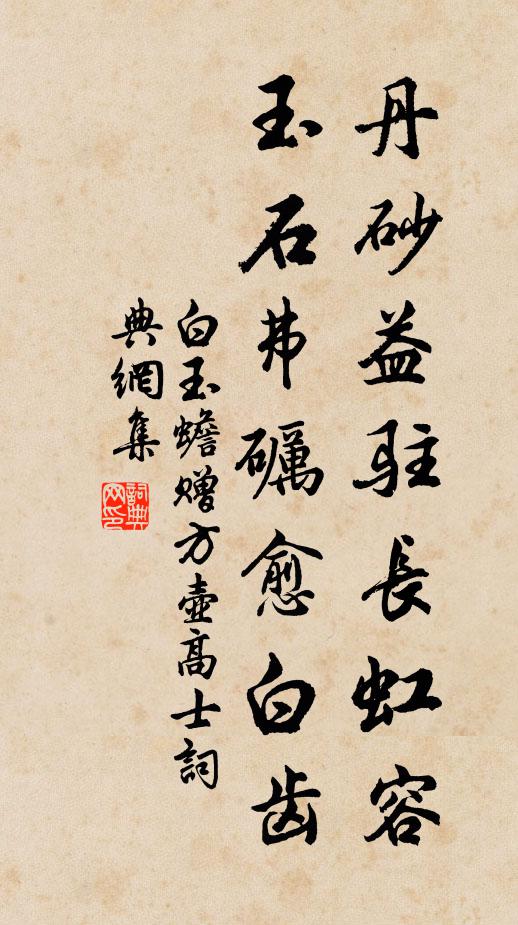 丹砂益驻長虹容
玉石弗礪愈白齿
白玉蟾赠方壶高士詞
典網集
詞典网印